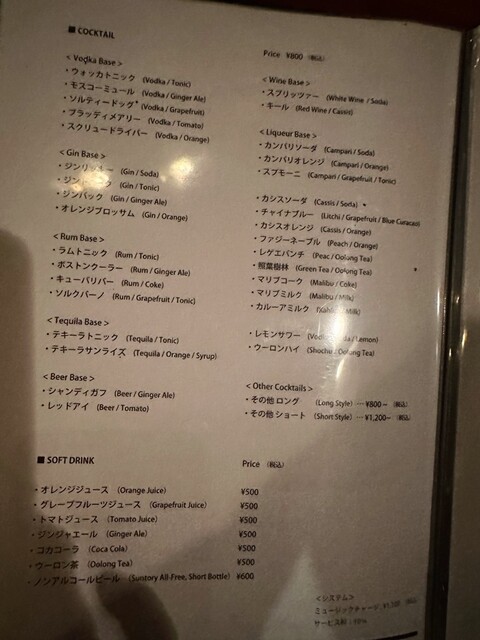 ■ COCKTAIL
Price ¥800 (税込)
< Vodka Base >
・ウォッカトニック (Vodka / Tonic)
・モスコーミュール (Vodka / Ginger Ale)
・ソルティードッグ (Vodka / Grapefruit)
・ブラッディメアリー (Vodka / Tomato)
・スクリュードライバー (Vodka / Orange)
< Gin Base >
(Gin / Soda)
(Gin / Tonic)
・ジンバック (Gin / Ginger Ale)
・オレンジブロッサム (Gin / Orange)
< Rum Base >
・ラムトニック (Rum / Tonic)
・ボストンクーラー (Rum / Ginger Ale)
・キューバリバー (Rum / Coke)
・ソルクバーノ (Rum / Grapefruit / Tonic)
< Tequila Base >
・テキーラトニック (Tequila / Tonic)
・テキーラサンライズ (Tequila / Orange / Syrup)
< Beer Base >
・シャンディガフ (Beer / Ginger Ale)
・レッドアイ (Beer / Tomato)
< Wine Base >
・スプリッツァー (White Wine / Soda)
・キール (Red Wine / Cassis)
< Liqueur Base >
・カンパリソーダ (Campari / Soda)
・カンパリオレンジ (Campari / Orange)
・スプモーニ (Campari / Grapefruit / Tonic)
・カシスソーダ (Cassis / Soda)
・チャイナブルー (Litchi / Grapefruit / Blue Curacao)
・カシスオレンジ (Cassis / Orange)
・ファジーネーブル (Peach / Orange)
・レゲエパンチ (Peac / Oolong Tea)
・照葉樹林 (Green Tea / Oolong Tea)
・マリブコーク (Malibu / Coke)
・マリブミルク (Malibu / Milk)
・カルーアミルク (Kahlua / Milk)
・レモンサワー / Lemon)
・ウーロンハイ (Shochu / Oolong Tea)
< Other Cocktails >
・その他 ロング (Long Style) ---- ¥800~ (税込)
・その他 ショート (Short Style) --- ¥1,200~ (税込)
■ SOFT DRINK
Price (税込)
・オレンジジュース (Orange Juice) ¥500
・グレープフルーツジュース (Grapefruit Juice) ¥500
・トマトジュース (Tomato Juice) ¥500
・ジンジャエール (Ginger Ale) ¥500
・コカコーラ (Coca Cola) ¥500
・ウーロン茶 (Oolong Tea) ¥500
・ノンアルコールビール (Suntory All-Free, Short Bottle) ¥600
<システム>
ミュージックチャージ
サービス料 : 10%